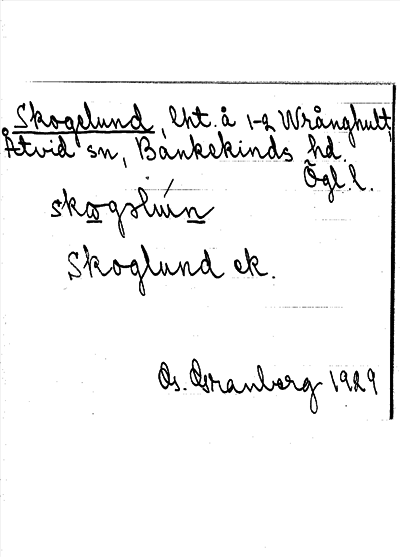 Skogslund, lht. å 1-2 Wrånghult,
Åtvid sn, Bankekinds hd.
Ögl. l.
skogslún
Skoglund ek.
Os. Granberg 1929